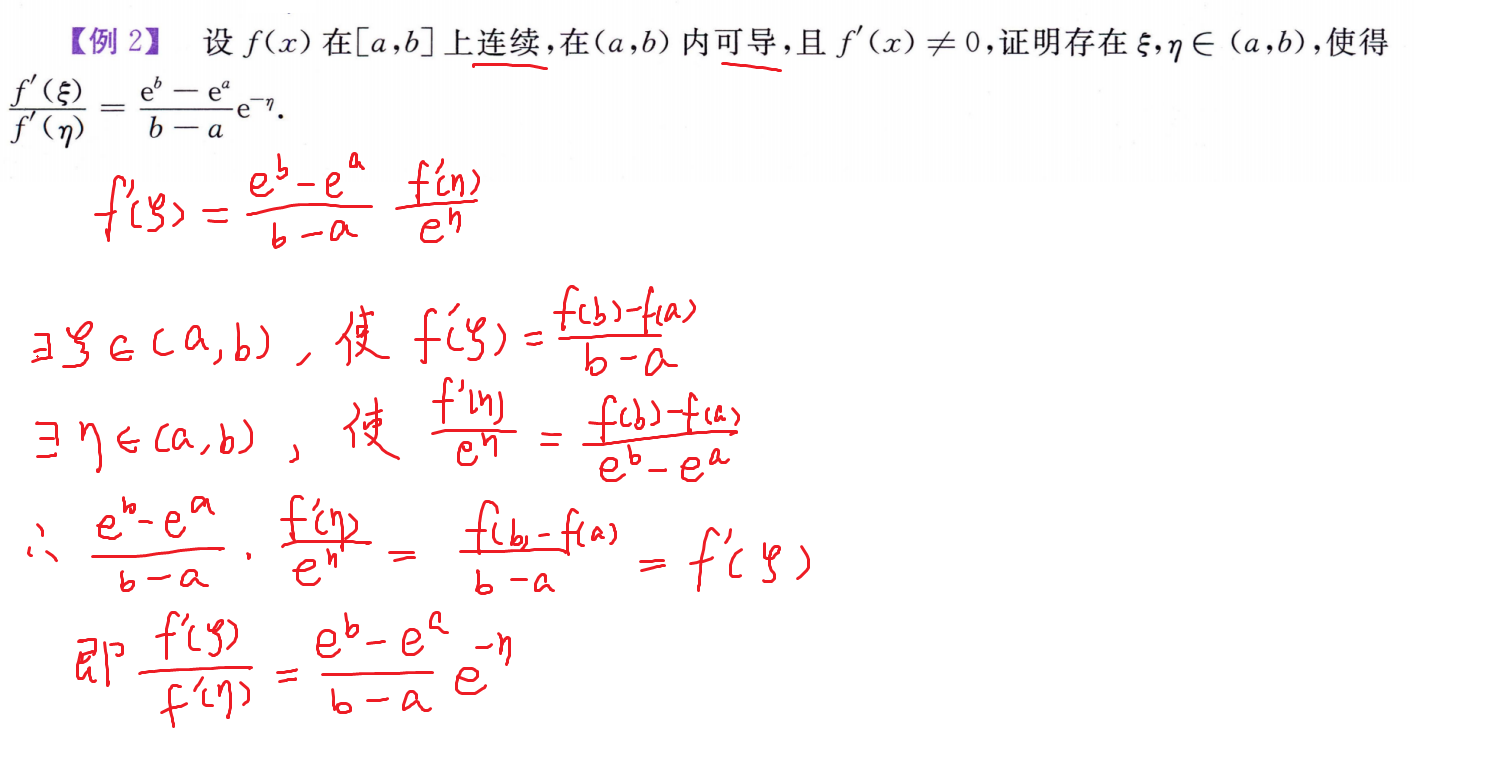 【例 2】 设 f(x) 在[a,b]上连续,在(a,b)内可导,且 f′(x) ≠ 0,证明存在 ξ,η ∈ (a,b),使得
f′(ξ)/f′(η) = (e^b − e^a)/(b − a) e^{−η}.
f′(ξ) = (e^b − e^a)/(b − a) f′(η)/e^η
∃ ξ ∈ (a,b), 使 f′(ξ) = (f(b)−f(a))/(b − a)
∃ η ∈ (a,b), 使 f′(η)/e^η = (f(b)−f(a))/(e^b − e^a)
∴ (e^b − e^a)/(b − a) · f′(η)/e^η = (f(b)−f(a))/(b − a) = f′(ξ)
即 f′(ξ)/f′(η) = (e^b − e^a)/(b − a) e^{−η}